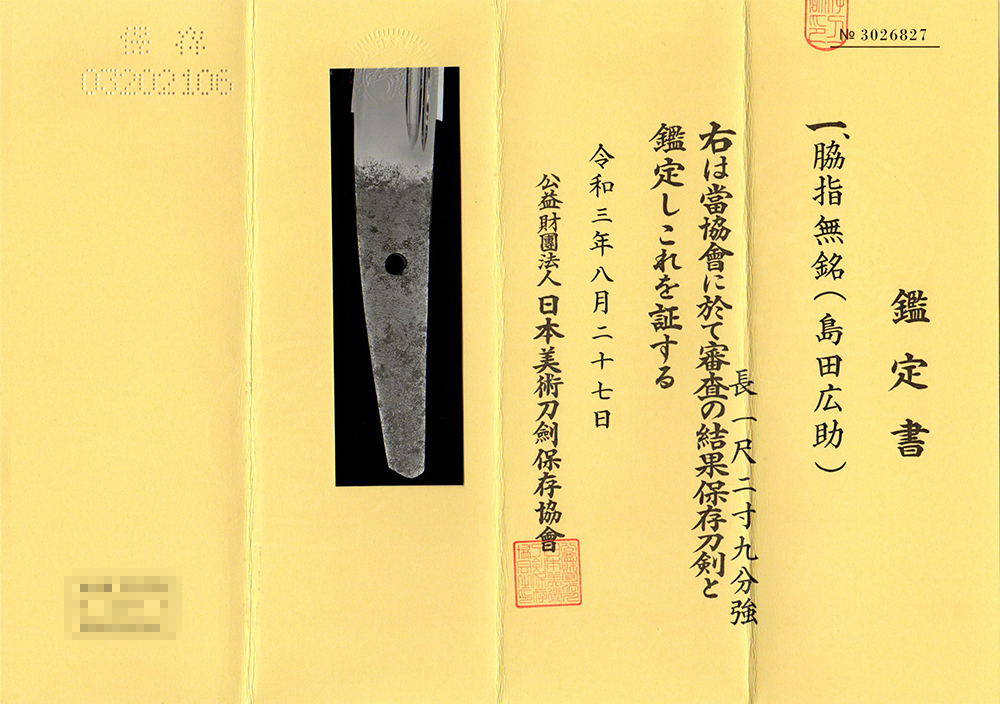 № 3026827
鑑定書
一、脇指無銘(島田広助)
長一尺二寸九分強
右は當協會に於て審査の結果保存刀剣と
鑑定しこれを証する
令和三年八月二十七日
公益財團法人 日本美術刀劍保存協會
保存
03202106